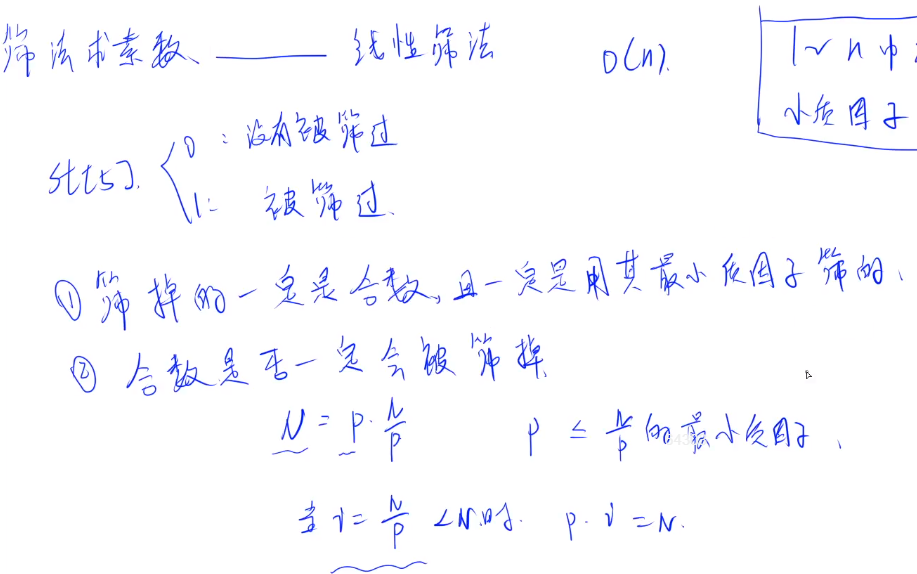 筛法求素数 —— 线性筛法 O(n).
1~n中
小质因子
st[]. 0: 没有被筛过
1: 被筛过.
① 筛掉的一定是合数, 且一定是用其最小质因子筛的.
② 合数是否一定会被筛掉
N = p · N/p p ≤ N/p 的最小质因子.
当 i = N/p < N 时. p · i = N.